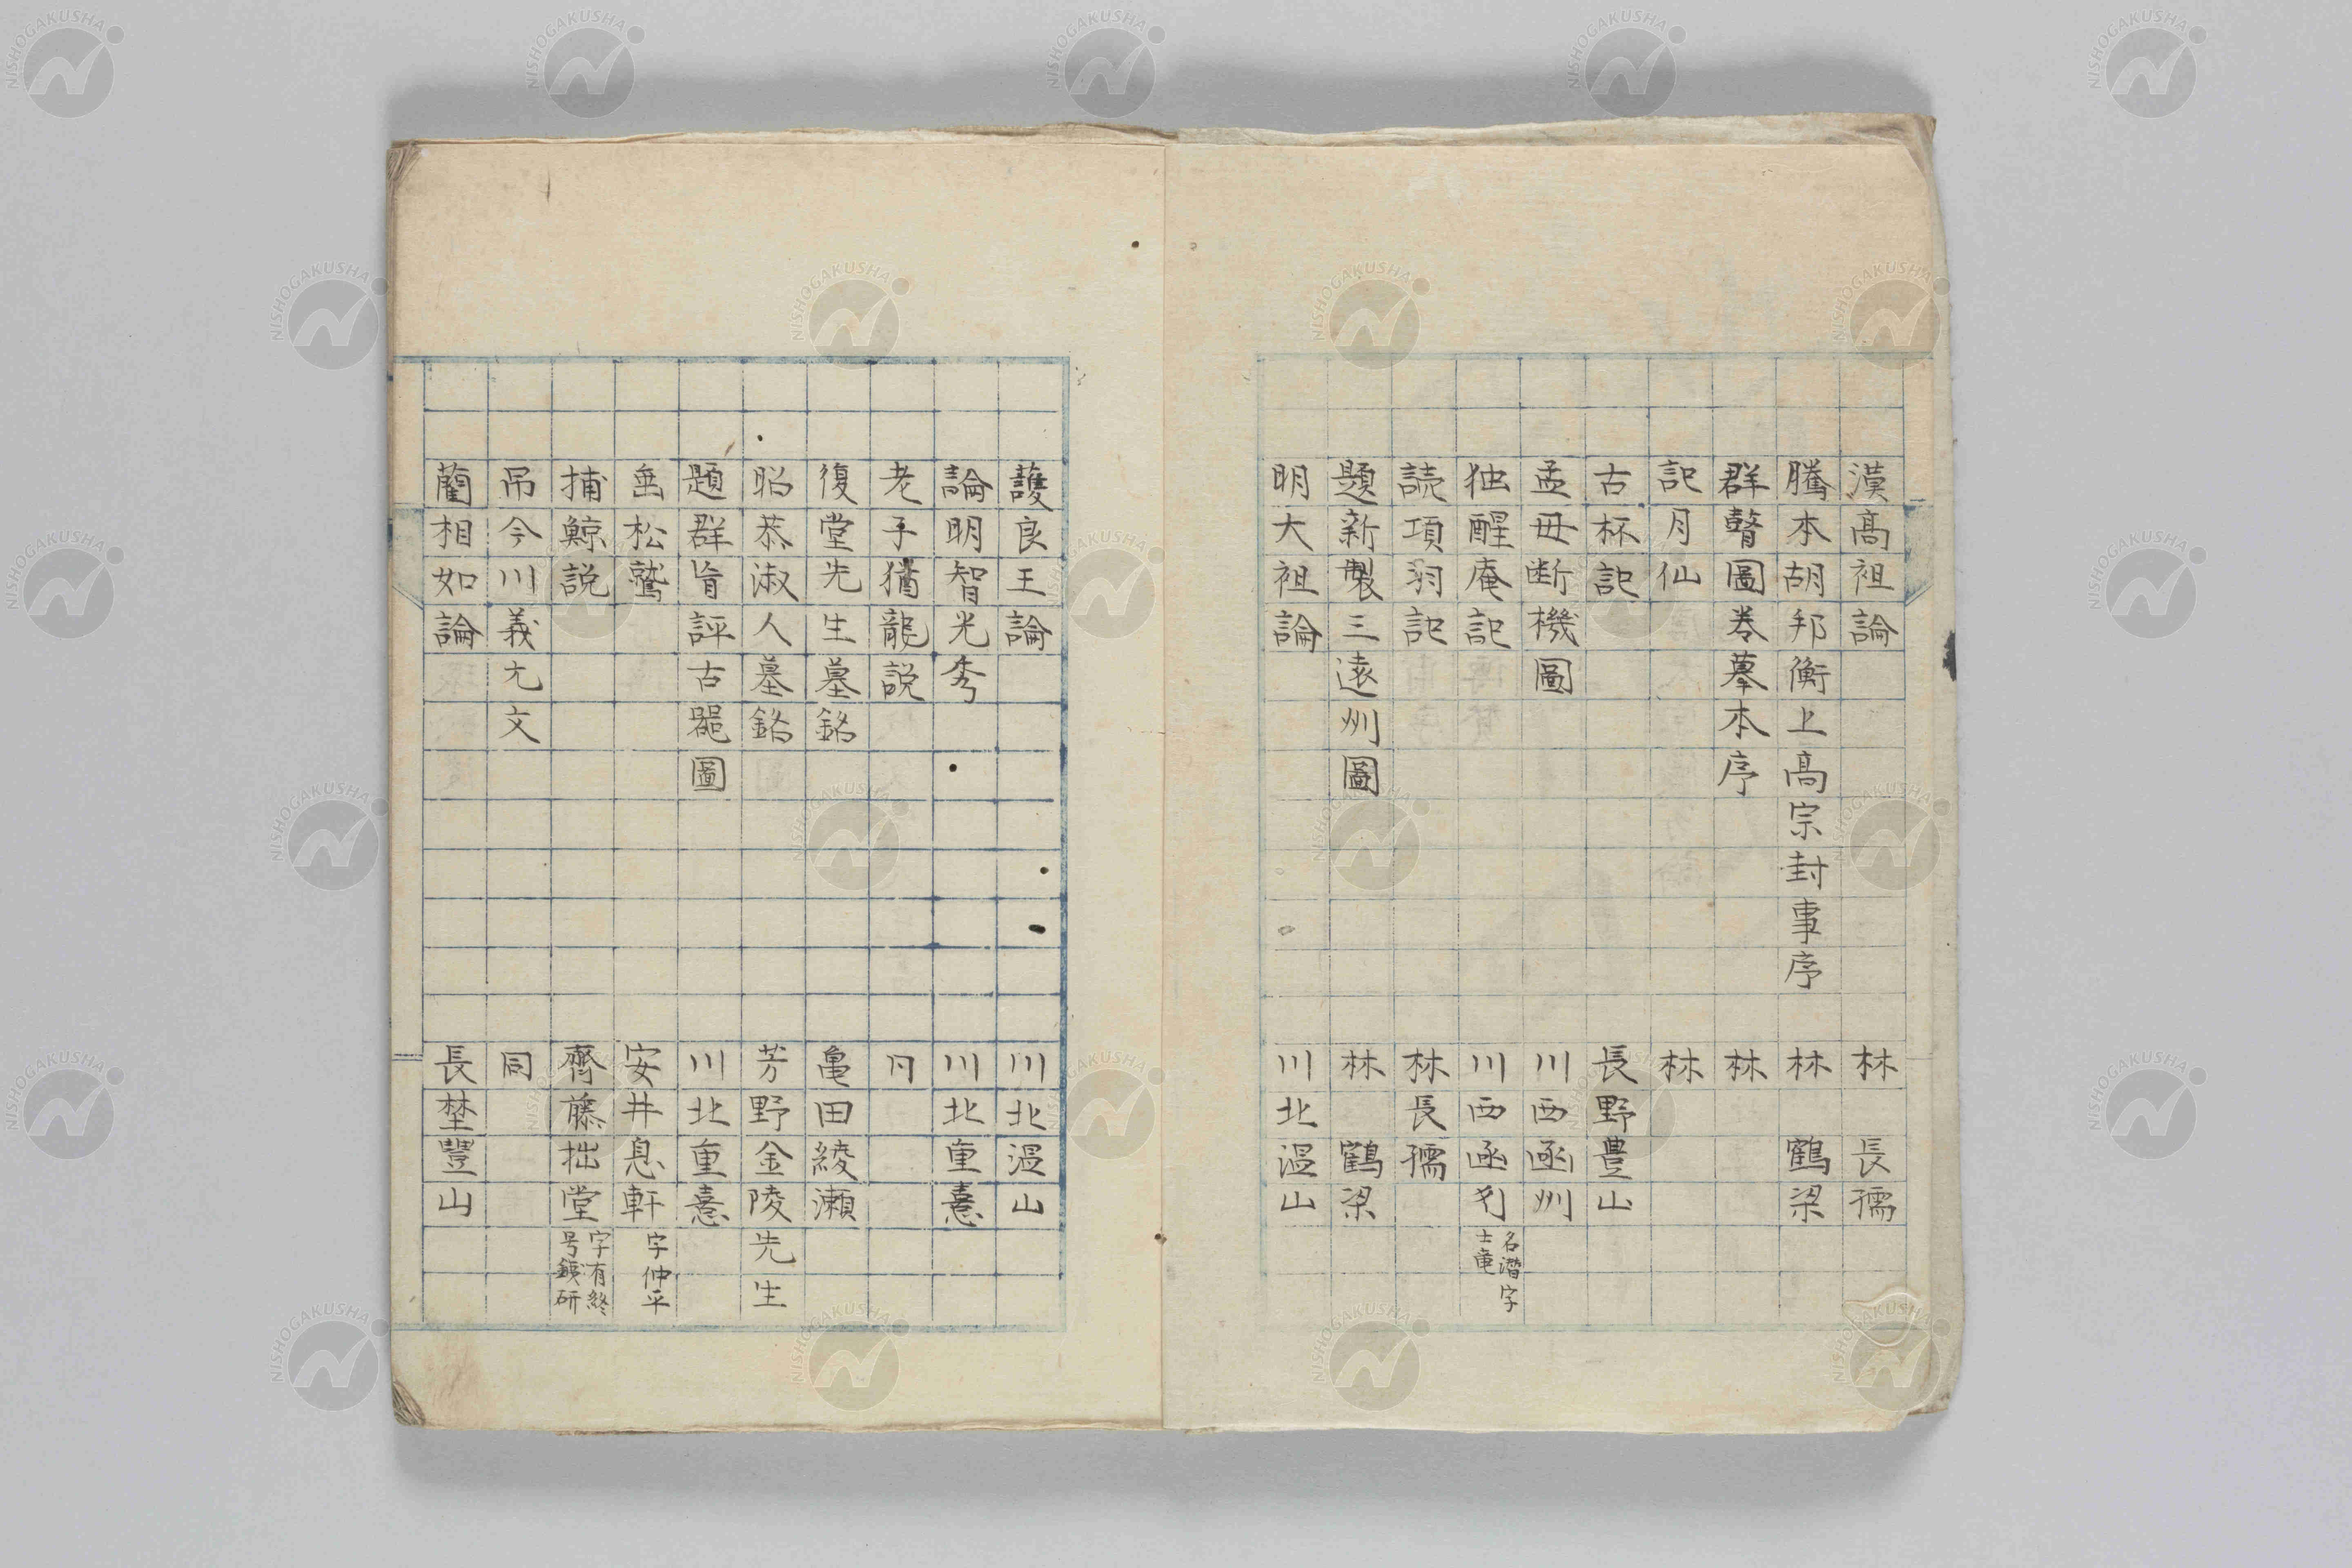 漠高祖論 林 長孺
騰本胡邦衡上高宗封事序 林 鶴梁
群瞽圖巻摹本序 林
記月仙 林
古杯記 長野豊山
孟毋断機圖 川西函州
独醒庵記 川西函刋 名潜字士竜
読項羽記 林長孺
題新製三遠州圖 林 鶴梁
明大祖論 川北温山
護良王論 川北温山
論明智光秀 川北重憙
老子猶龍説
復堂先生墓銘 亀田綾瀬
昭恭淑人墓銘 芳野金陵先生
題群盲評古器圖 川北重憙
垂松鷲 安井息軒 字仲平
捕鯨説 齊藤拙堂 字有終号鐵研
吊今川義元文 同
藺相如論 長埜豐山
NISHOGAKUSHA